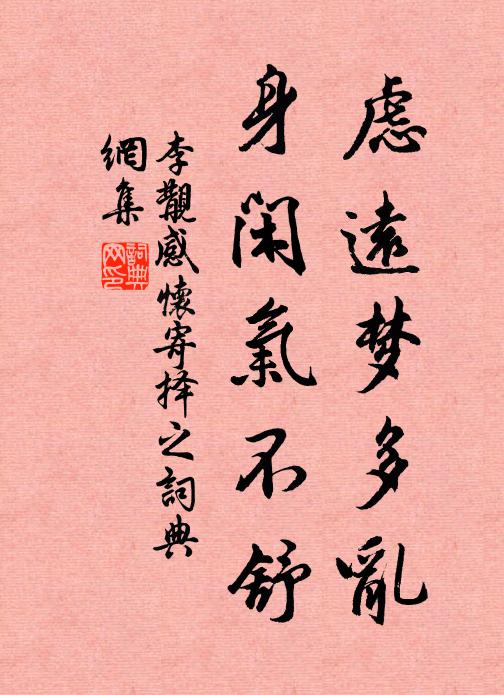 慮遠梦多亂
身閑氣不舒
李觀感懷寄择之詞典
網集
詞典
网印